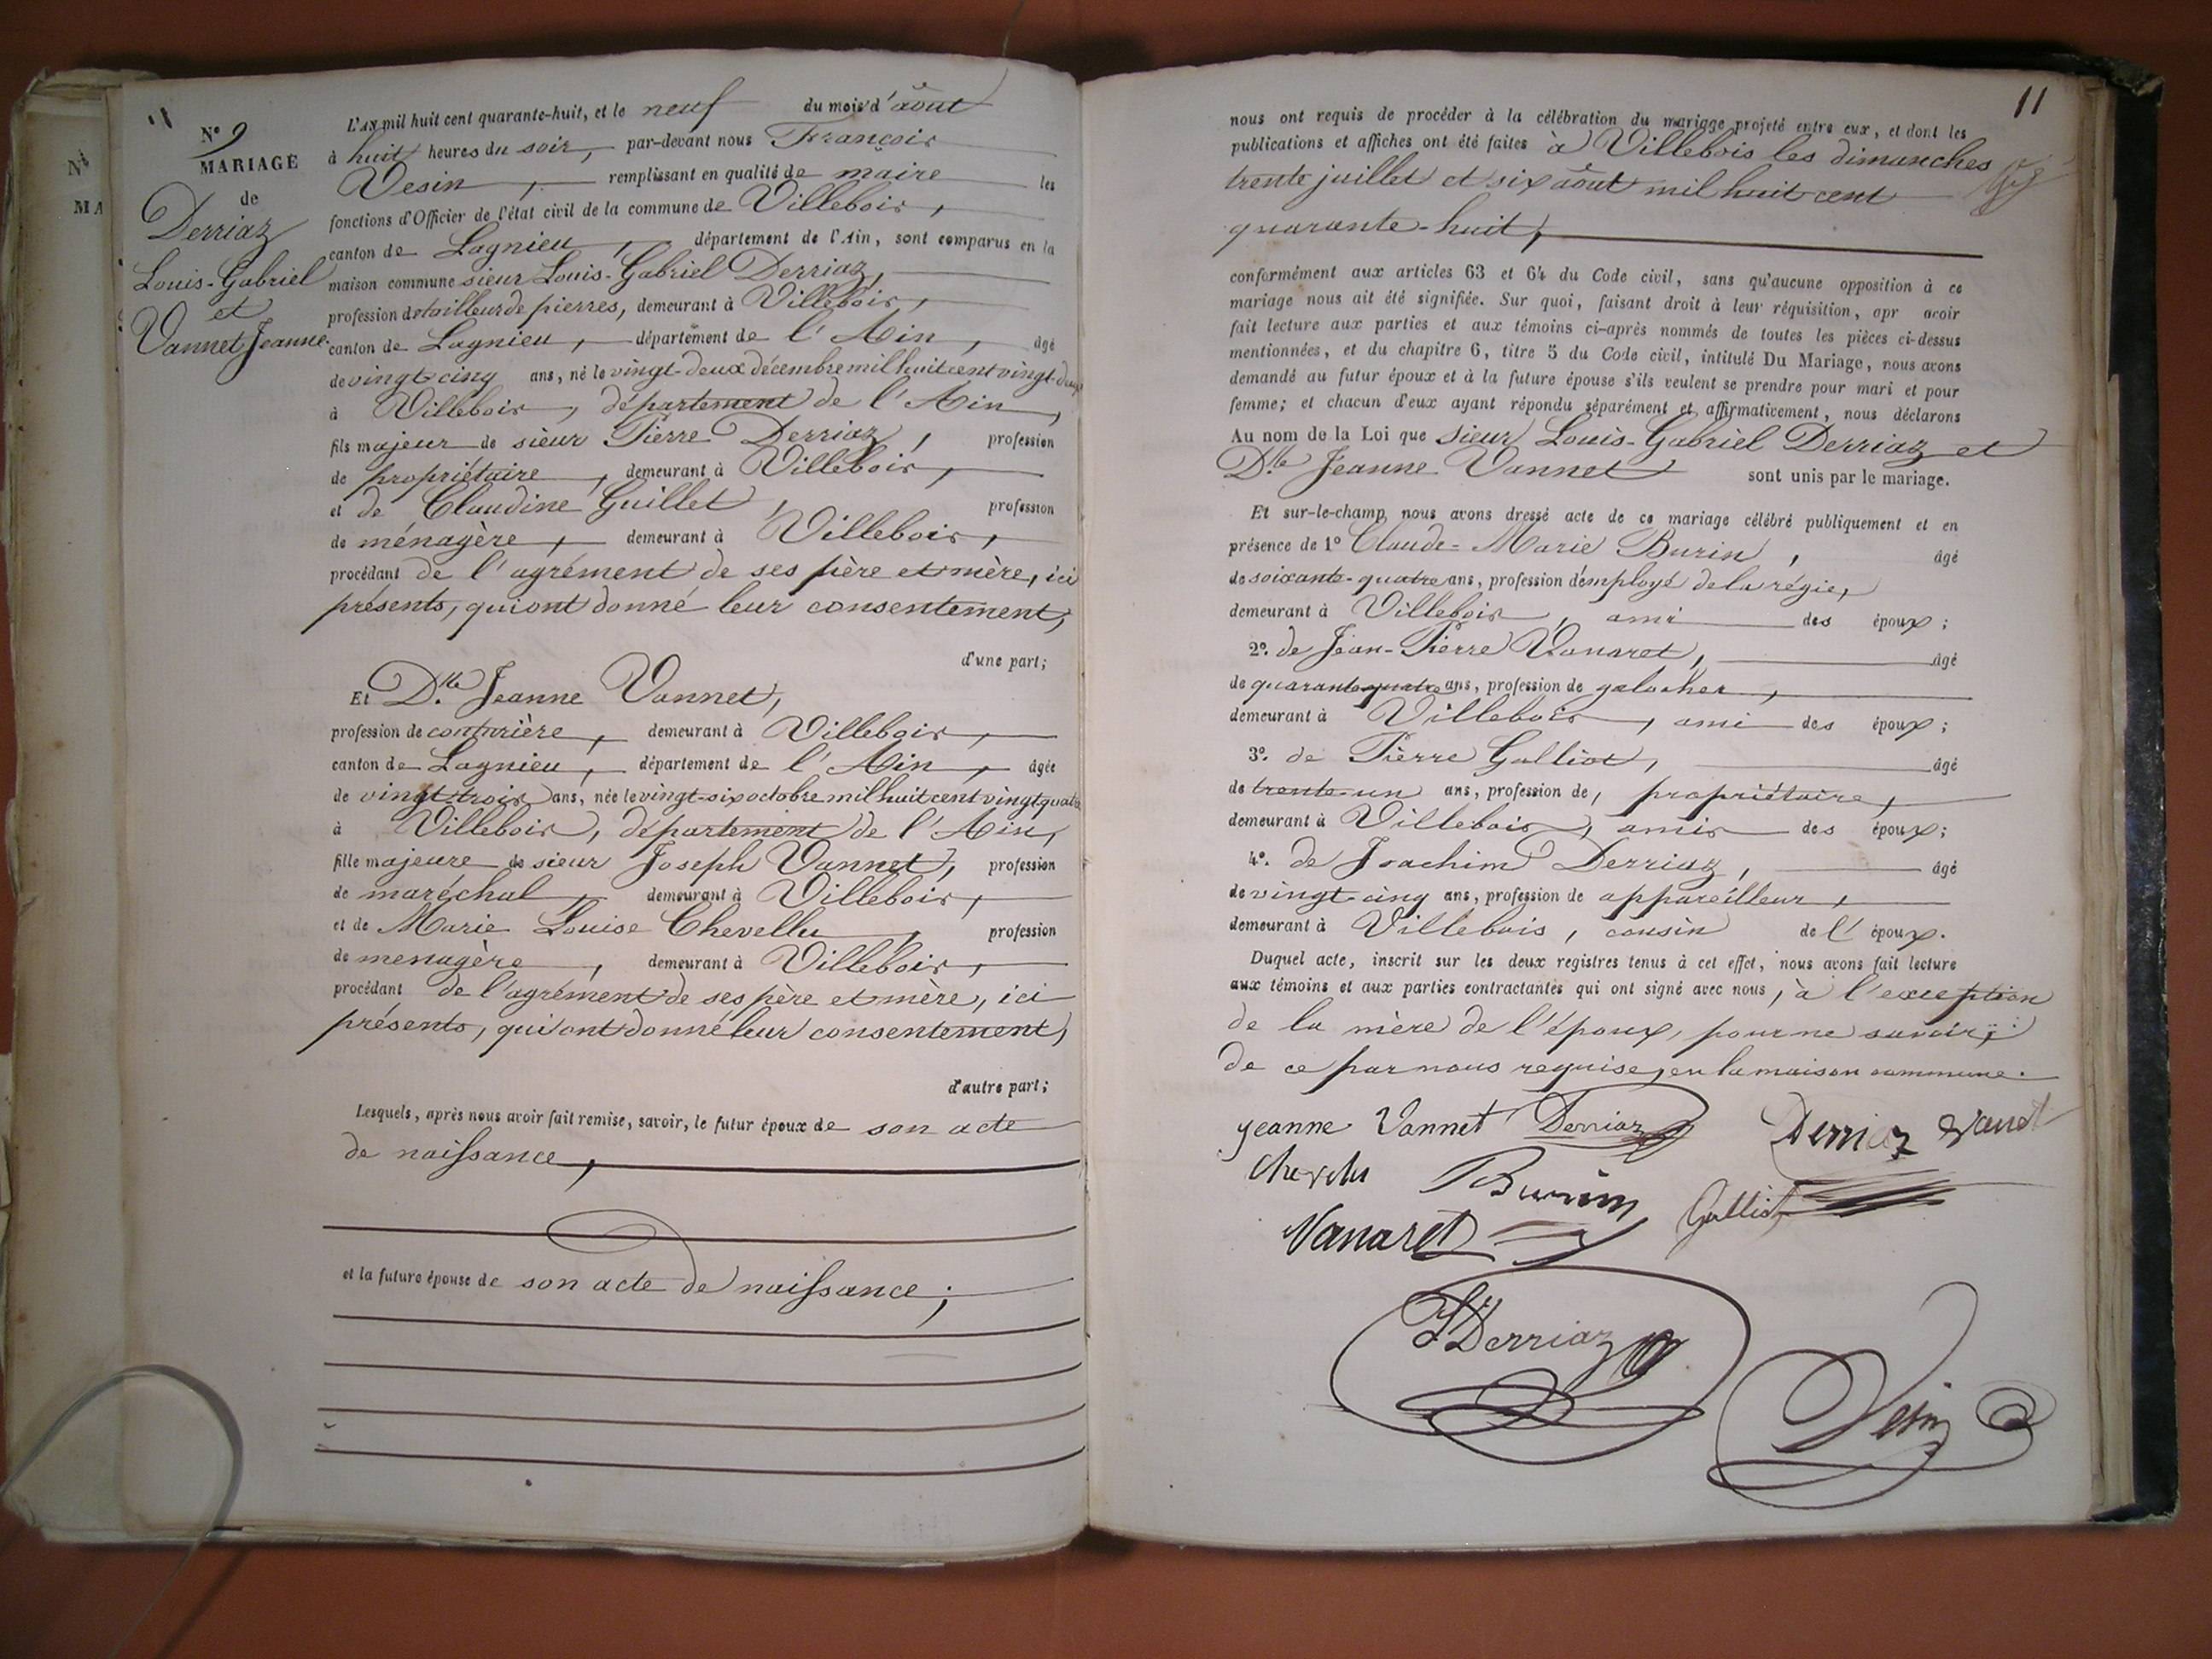 N° 9
MARIAGE
de
Derriaz
Louis-Gabriel
et
Vannet Jeanne.
L'AN mil huit cent quarante-huit, et le neuf du mois d'août
à huit heures du soir, par-devant nous François
Vesin, remplissant en qualité de maire les
fonctions d'Officier de l'état civil de la commune de Villebois,
canton de Lagnieu, département de l'Ain, sont comparus en la
maison commune sieur Louis-Gabriel Derriaz,
profession de tailleur de pierres, demeurant à Villebois,
canton de Lagnieu, département de l'Ain, âgé
de vingt-cinq ans, né le vingt-deux décembre mil huit cent vingt-deux
à Villebois, département de l'Ain,
fils majeur de sieur Pierre Derriaz, profession
de propriétaire, demeurant à Villebois,
et de Claudine Guillet, profession
de ménagère, demeurant à Villebois,
procédant de l'agrément de ses père et mère, ici
présents, qui ont donné leur consentement,
d'une part;
Et D.lle Jeanne Vannet,
profession de couturière, demeurant à Villebois,
canton de Lagnieu, département de l'Ain, âgée
de vingt-trois ans, née le vingt-six octobre mil huit cent vingt quatre
à Villebois, département de l'Ain,
fille majeure de sieur Joseph Vannet, profession
de maréchal, demeurant à Villebois,
et de Marie Louise Chevellu, profession
de menagère, demeurant à Villebois,
procédant de l'agrément de ses père et mère, ici
présents, qui ont donné leur consentement,
d'autre part;
Lesquels, après nous avoir fait remise, savoir, le futur époux de son acte
de naissance,
et la future épouse de son acte de naissance;
11
nous ont requis de procéder à la célébration du mariage projeté entre eux, et dont les
publications et affiches ont été faites à Villebois les dimanches
trente juillet et six août mil huit cent
quarante-huit,
conformément aux articles 63 et 64 du Code civil, sans qu'aucune opposition à ce
mariage nous ait été signifiée. Sur quoi, faisant droit à leur réquisition, apr avoir
fait lecture aux parties et aux témoins ci-après nommés de toutes les pièces ci-dessus
mentionnées, et du chapitre 6, titre 5 du Code civil, intitulé Du Mariage, nous avons
demandé au futur époux et à la future épouse s'ils veulent se prendre pour mari et pour
femme; et chacun d'eux ayant répondu séparément et affirmativement, nous déclarons
Au nom de la Loi que sieur Louis-Gabriel Derriaz et
D.lle Jeanne Vannet sont unis par le mariage.
Et sur-le-champ nous avons dressé acte de ce mariage célébré publiquement et en
présence de 1° Claude-Marie Burin, âgé
de soixante-quatre ans, profession d'employé de la régie,
demeurant à Villebois, ami des époux;
2°. de Jean-Pierre Vanaret, âgé
de quarante quatre ans, profession de galocher,
demeurant à Villebois, ami des époux;
3°. de Pierre Galliot, âgé
de trente-un ans, profession de, propriétaire,
demeurant à Villebois, amis des époux;
4°. de Joachim Derriaz, âgé
de vingt-cinq ans, profession de appareilleur,
demeurant à Villebois, cousin de l'époux.
Duquel acte, inscrit sur les deux registres tenus à cet effet, nous avons fait lecture
aux témoins et aux parties contractantes qui ont signé avec nous, à l'exception
de la mère de l'époux, pour ne savoir,
de ce par nous requise, en la maison commune.
jeanne Vannet Derriaz Derriaz Vanet
Burin
Vanaret Galliot
JDerriaz
Vesin